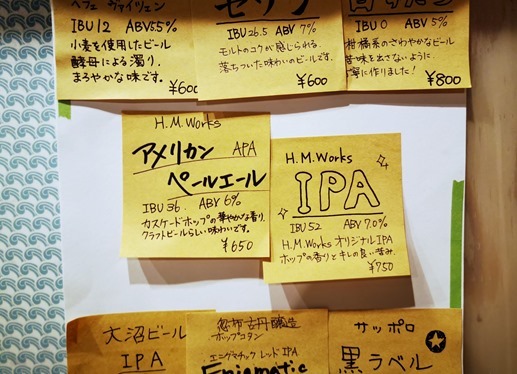 ヘフェ ヴァイツェン
IBU 12 ABV 5.5%
小麦を使用したビール
酵母による濁り、
まろやかな味です。
¥600
IBU 26.5 ABV 7%
モルトのコクが感じられる
落ちついた味わいのビールです。
¥600
IBU 0 ABV 5%
柑橘系のさわやかなビール
苦味を出さないように
寧に作りました!
¥800
H.M.Works
アメリカン APA
ペールエール
IBU 36. ABV 6%
カスケードホップの華やかな香り、
クラフトビールらしい味わいです。
¥650
H.M.Works
IPA
IBU 52 ABV 7.0%
H.M.Works オリジナルIPA
ホップの香りとキレの良い苦み.
¥750
大沼ビール
IPA
忽布古丹醸造
ホップコタン
エニグマチック レッド IPA
Enigmatic
サッポロ
黒ラベル